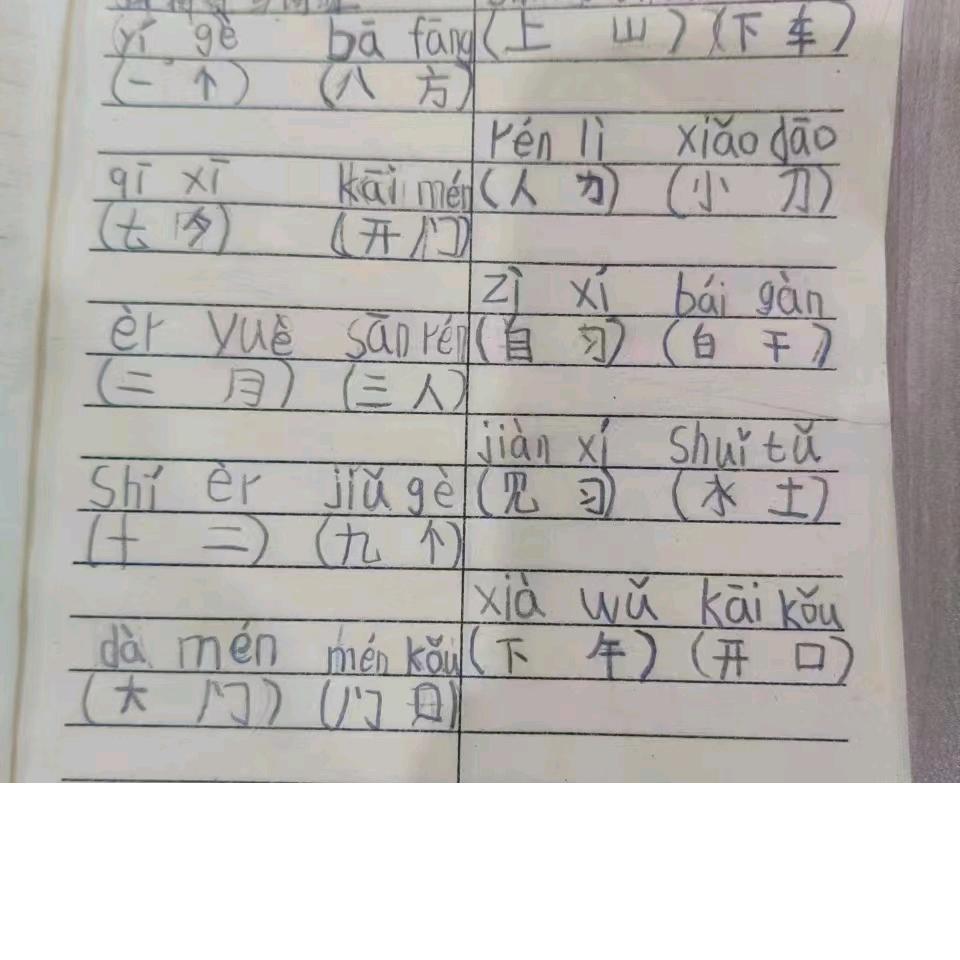 yí gè bā fāng
(一 个) (八 方)
qī xī kāi mén
(七 夕) (开 门)
èr yuè sān rén
(二 月) (三 人)
Shí èr jiǔ gè
(十 二) (九 个)
dà mén mén kǒu
(大 门) (门 日)
(上 山) (下 车)
rén lì xiǎo dāo
(人 力) (小 刀)
zì xí bái gàn
(自 习) (白 干)
jiàn xí Shuǐ tǔ
(见 习) (水 土)
xià wǔ kāi kǒu
(下 午) (开 口)